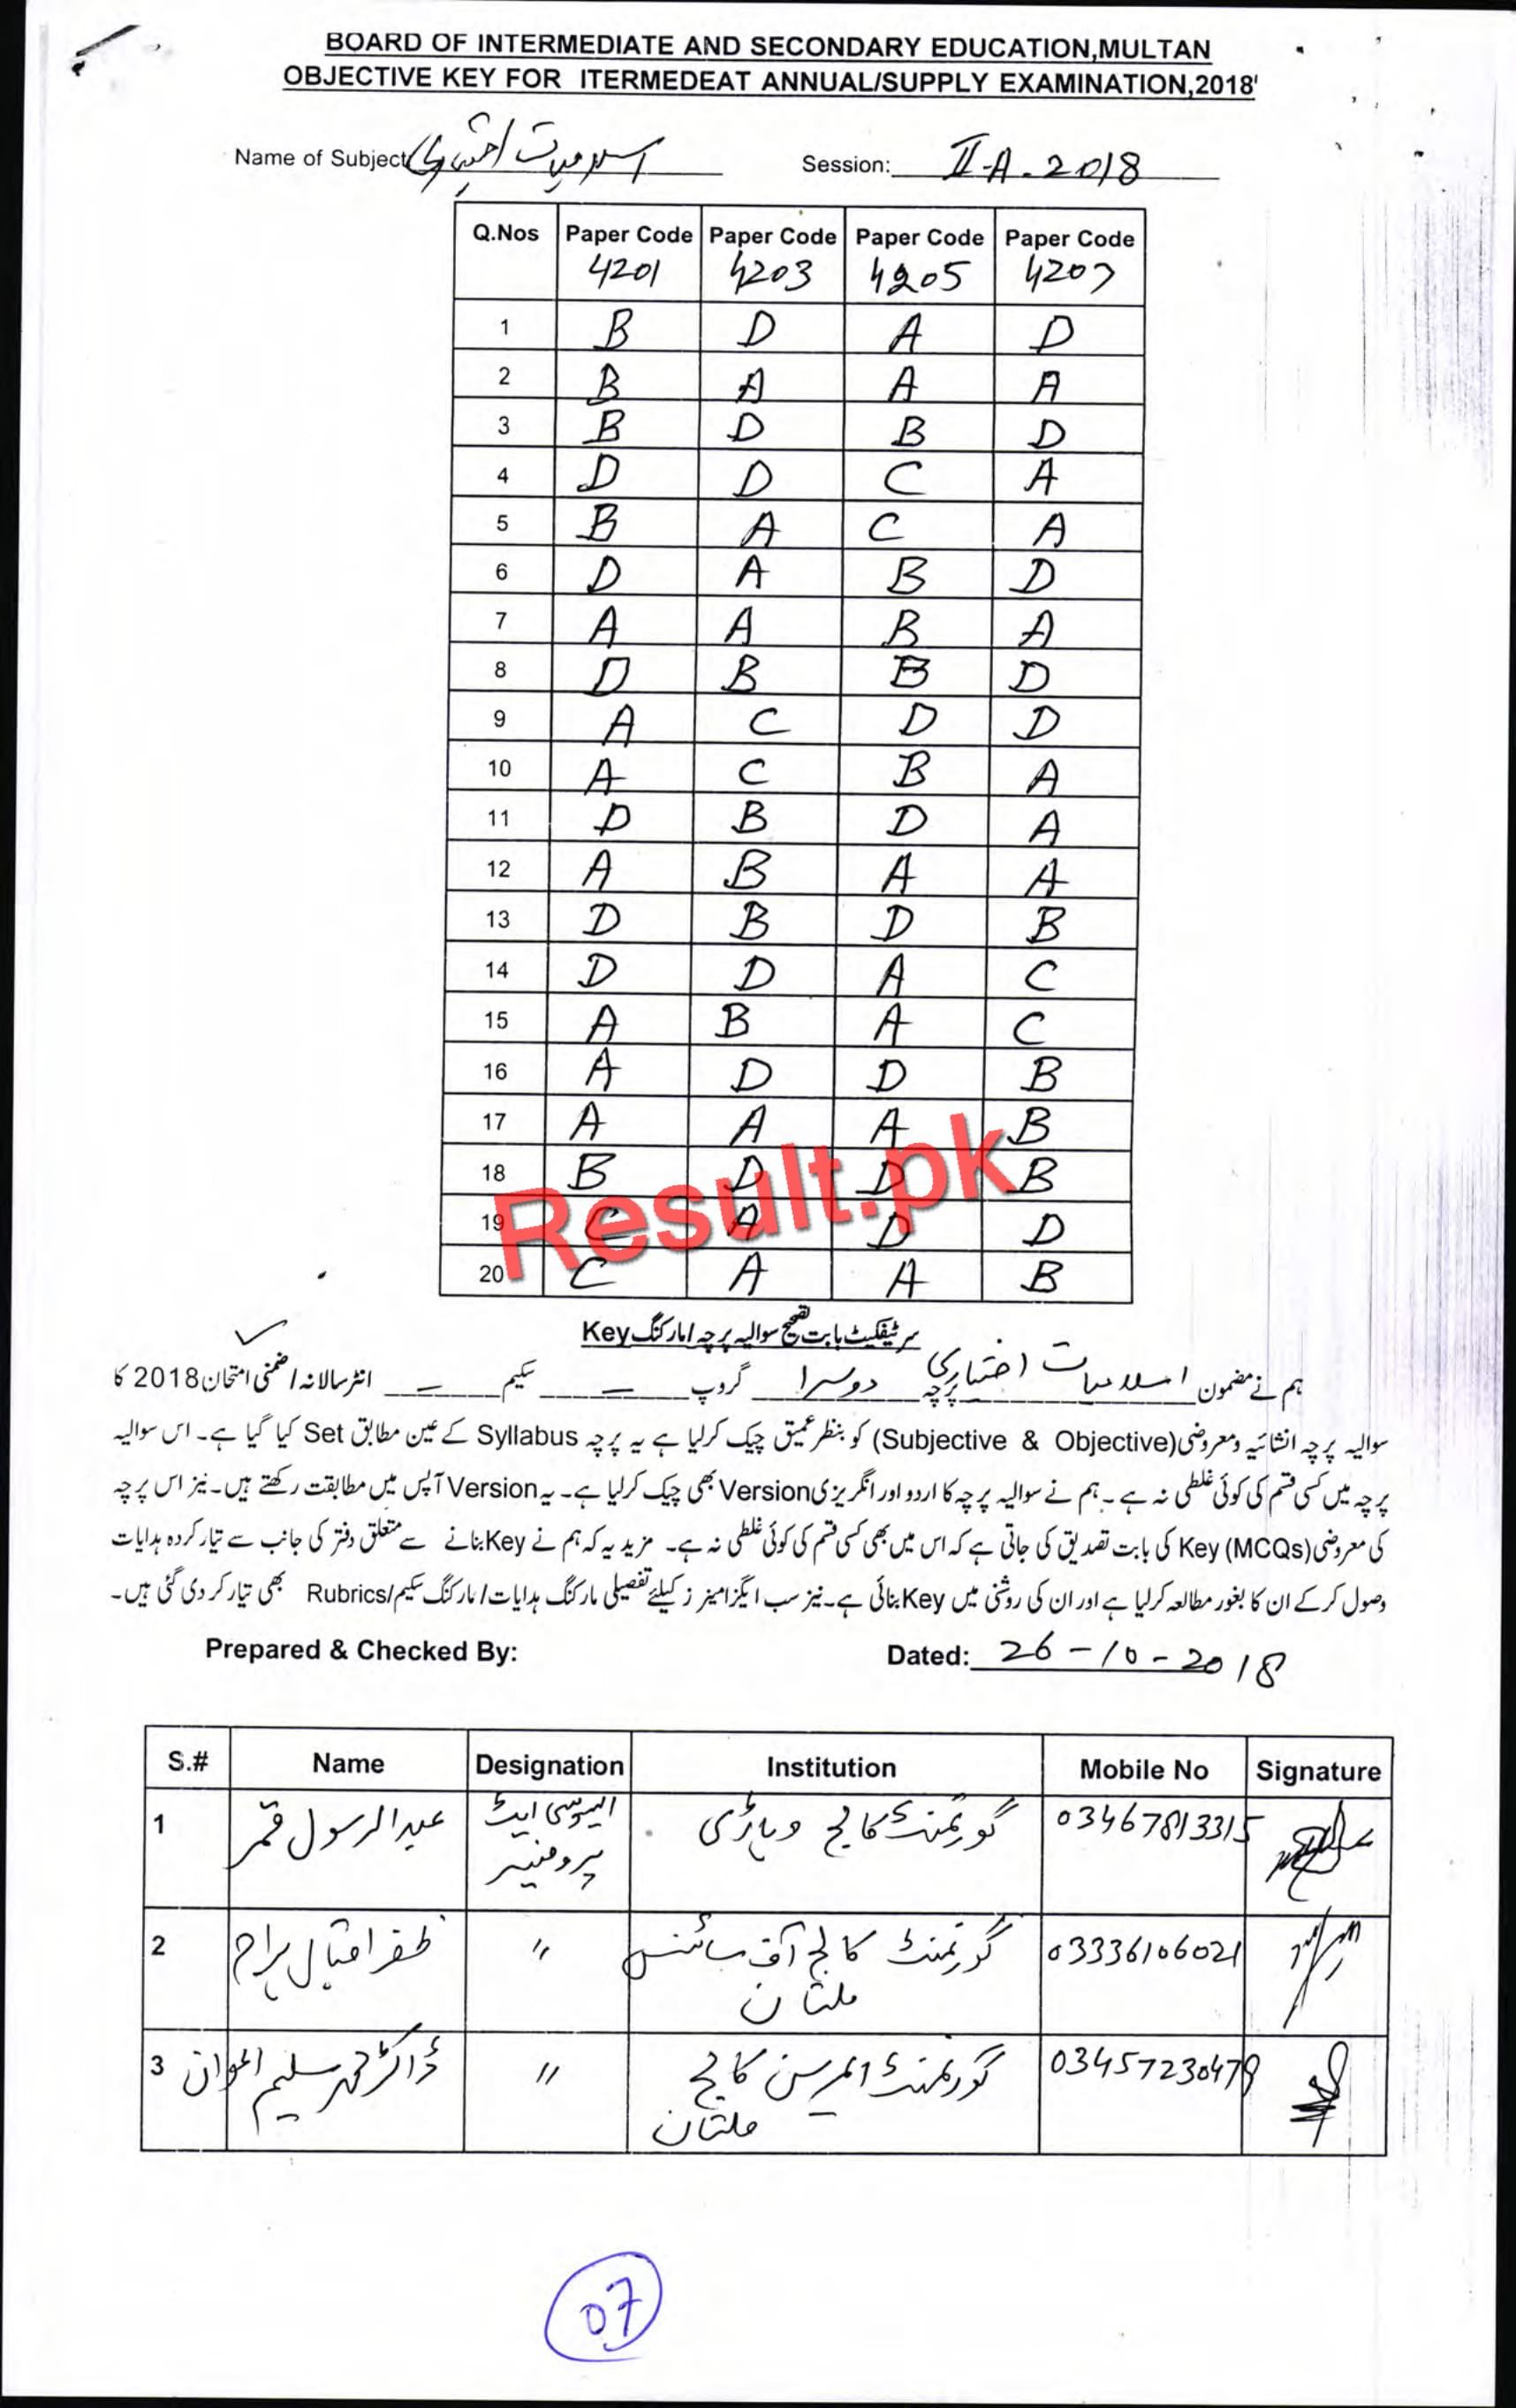 BOARD OF INTERMEDIATE AND SECONDARY EDUCATION,MULTAN
OBJECTIVE KEY FOR ITERMEDEAT ANNUAL/SUPPLY EXAMINATION,2018'
Name of Subject اسلامیات اختیاری Session: II-A-2018
Q.Nos Paper Code Paper Code Paper Code Paper Code
4201 4203 4205 4207
1 B D A D
2 B A A A
3 B D B D
4 D D C A
5 B A C A
6 D A B D
7 A A B A
8 D B B D
9 A C D D
10 A C B A
11 D B D A
12 A B A A
13 D B D B
14 D D A C
15 A B A C
16 A D D B
17 A A A B
18 B D D B
19 C A D D
20 C A A B
Result.pk
سرٹیفکیٹ بابت تصحیح سوالیہ پرچہ/مارکنگ Key
ہم نے مضمون اسلامیات اختیاری پرچہ دوسرا گروپ — سکیم — انٹرسالانہ/ضمنی امتحان 2018 کا
سوالیہ پرچہ انشائیہ ومعروضی (Subjective & Objective) کو بنظر عمیق چیک کرلیا ہے یہ پرچہ Syllabus کے عین مطابق Set کیا گیا ہے۔ اس سوالیہ
پرچہ میں کسی قسم کی کوئی غلطی نہ ہے۔ ہم نے سوالیہ پرچہ کا اردو اور انگریزی Version بھی چیک کرلیا ہے۔ یہ Version آپس میں مطابقت رکھتے ہیں۔ نیز اس پرچہ
کی معروضی (MCQs) Key کی بابت تصدیق کی جاتی ہے کہ اس میں بھی کسی قسم کی کوئی غلطی نہ ہے۔ مزید یہ کہ ہم نے Key بنانے سے متعلق دفتر کی جانب سے تیار کردہ ہدایات
وصول کرکے ان کا بغور مطالعہ کرلیا ہے اور ان کی روشنی میں Key بنائی ہے۔ نیز سب ایگزامینرز کیلئے تفصیلی مارکنگ ہدایات/مارکنگ سکیم/Rubrics بھی تیار کردی گئی ہیں۔
Prepared & Checked By: Dated: 26-10-2018
S.# Name Designation Institution Mobile No Signature
1 عبدالرسول قمر ایسوسی ایٹ پروفیسر گورنمنٹ کالج وہاڑی 03467813315
2 ظفر اقبال براج " گورنمنٹ کالج آف سائنس ملتان 03336106021
3 ڈاکٹر محمد سلیم اعوان " گورنمنٹ ایمرسن کالج ملتان 03457230478
07